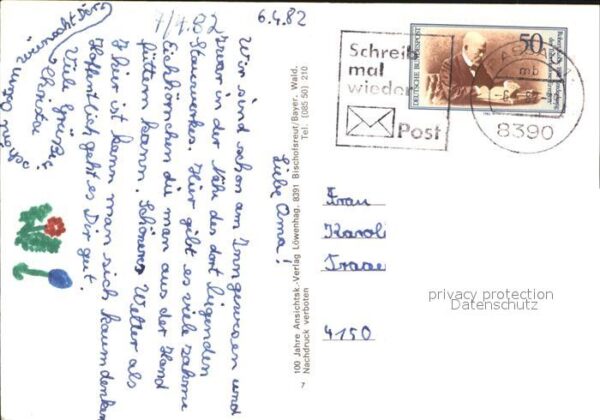 6.4.82
7/7.82
Liebe Oma!
Wir sind schon am Inn gewesen und
zwar in der Nähe des dort liegenden
Stauwerkes. Hier gibt es viele zahme
Eichhörnchen die man aus der Hand
füttern kann. Schöneres Wetter als
hier ist kann man sich kaum denken
Hoffentlich geht es Dir gut!
Viele Grüße,
Christa
100 Jahre Ansichtsk.-Verlag Löwenhag, 8391 Bischofsreut/Bayer. Wald.
Nachdruck verboten Tel. (085 50) 210
7
Schreib
mal
wieder
Post
50
DEUTSCHE BUNDESPOST
mb
8390
Frau
Karoli
4150
privacy protection
Datenschutz